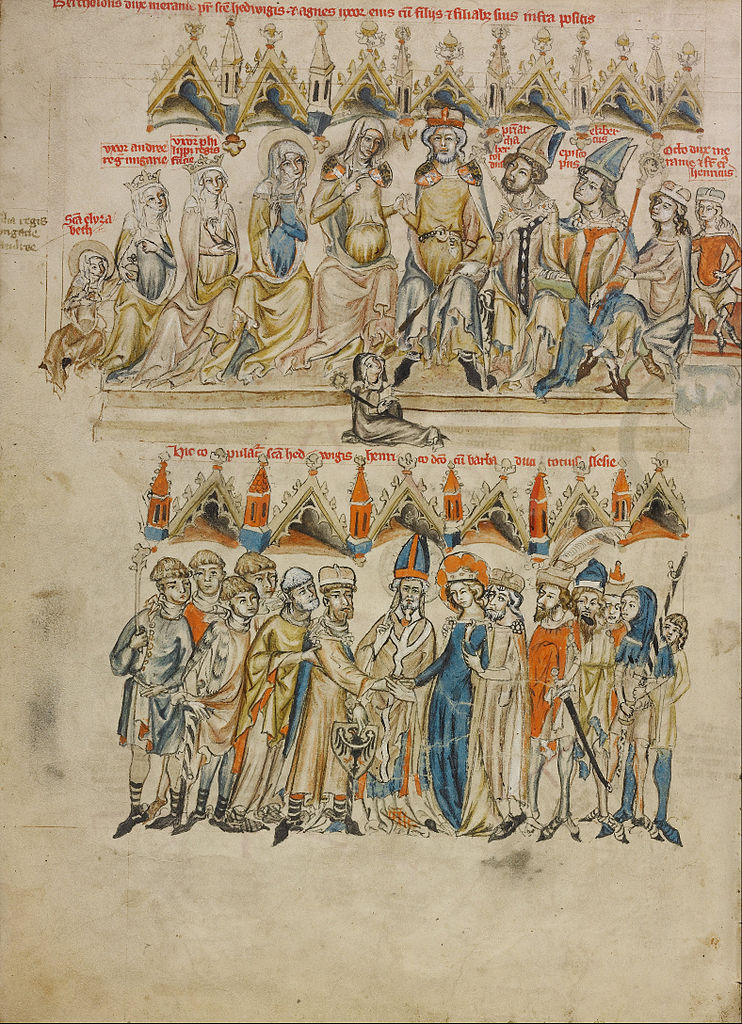 Bertholdus dux meranie pr̄ sc̄e hedwigis ⁊ agnes uxor eius cū filijs ⁊ filiab᷒ suis infra positis
uxor andree
regis ungarie
uxor phi
lippi regis
filie
Sc̄a elyza
beth
lia regis
ngarie
ndree
pr̄iar
cha
ber
tol
dus
ekber
tus
episco
pus
Octo dux me
ranie
henricus
Hic copulat̄ sc̄a hedwigis henrico dc̄o cū barba duci totius slesie